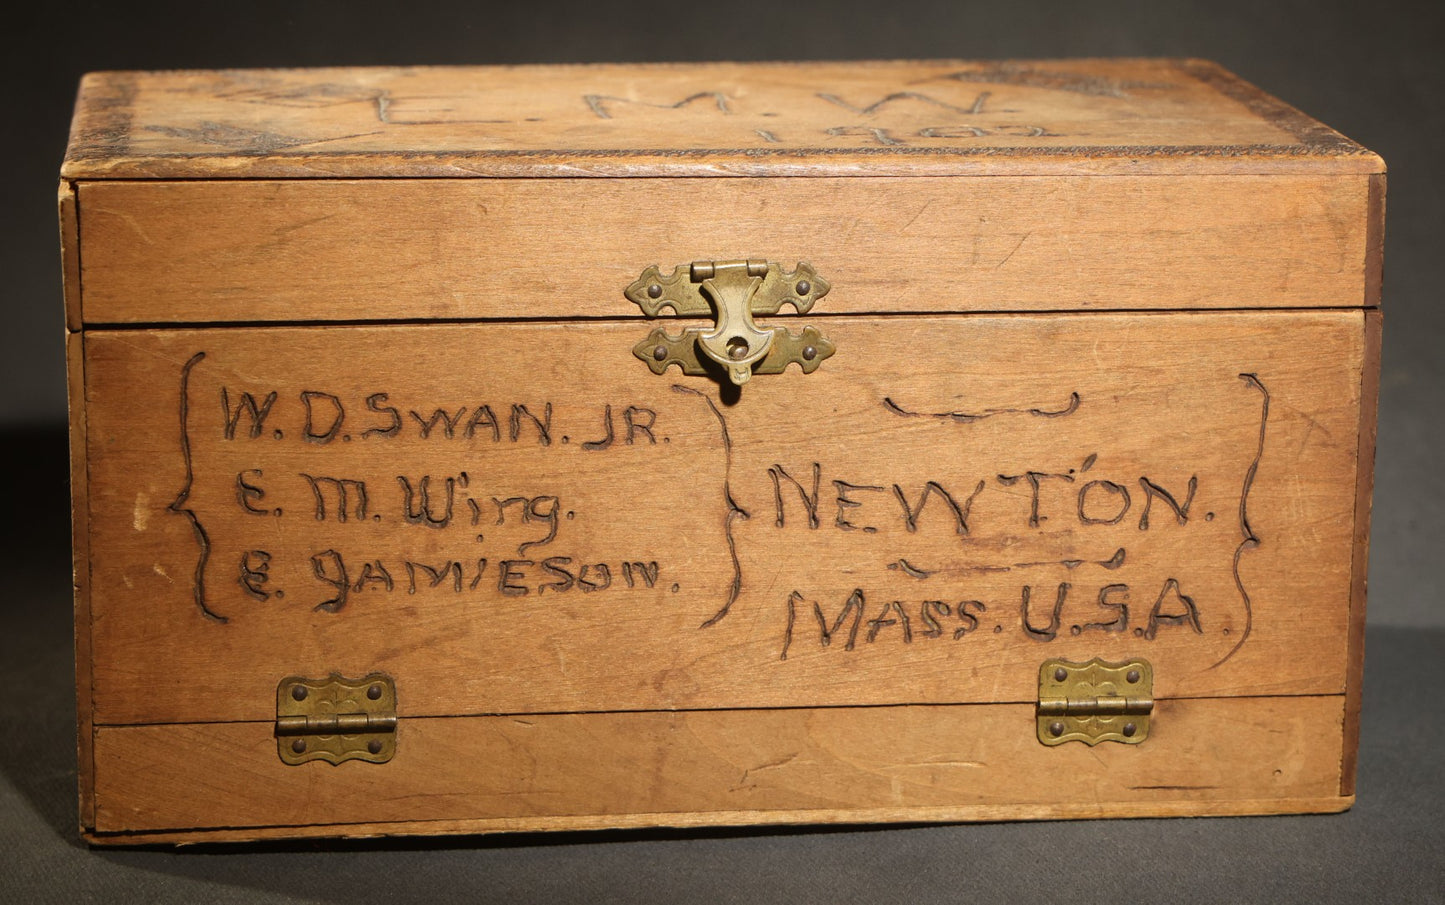 E. M. W.
1902
W. D. SWAN. JR.
E. M. Wing.
E. JAMIESON.
NEWTON.
MASS. U.S.A.